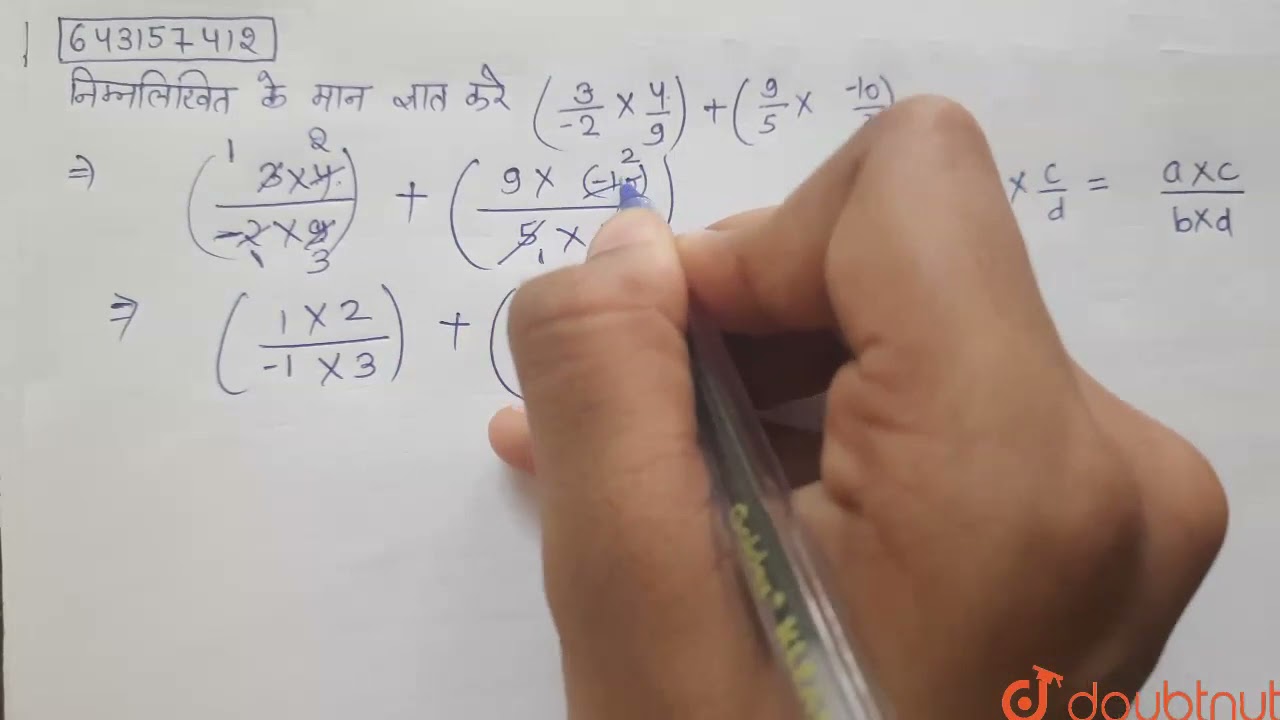 643157412
निम्नलिखित के मान ज्ञात करे (3/-2 × 4/9) + (9/5 × -10/
⇒ (3×4/-2×9) + (9×(-10)/5×
1 2 1 3 2 1
× c/d = a×c/b×d
⇒ (1×2/-1×3) + (
doubtnut